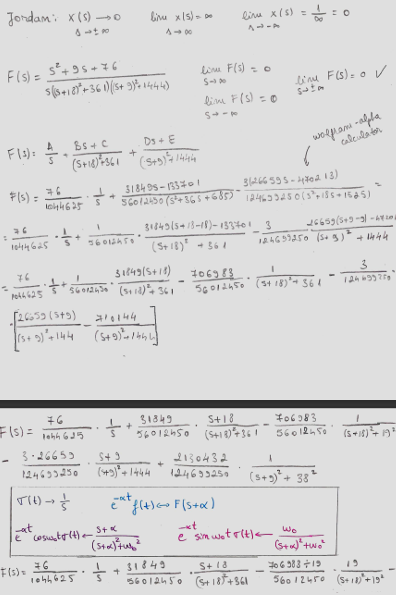 Jordan: X(s) → 0 lim x(s) = ∞ lim x(s) = 1/∞ = 0
s→±∞ s→∞ s→-∞
F(s) = (s²+9s+76)/(s((s+18)²+361)((s+9)²+1444)) lim F(s) = 0 lim F(s) = 0 ✓
s→∞ s→±∞
lim F(s) = 0
s→-∞
F(s) = A/s + (Bs+C)/((s+18)²+361) + (Ds+E)/((s+9)²+1444)
wolfram-alpha
calculator
F(s) = 76/1044625 · 1/s + (31849s-133701)/(56012450(s²+36s+685)) - 3(26659s-470213)/(124699250(s²+18s+1525)) =
= 76/1044625 · 1/s + 1/56012450 · (31849(s+18-18)-133701)/((s+18)²+361) - 3/124699250 · (26659(s+9-9)-470213)/((s+9)²+1444
= 76/1044625 · 1/s + 1/56012450 · 31849(s+18)/((s+18)²+361) - 706983/56012450 · 1/((s+18)²+361) - 3/124699250 ·
· [26659(s+9)/((s+9)²+144) - 710144/((s+9)²+1444)]
F(s) = 76/1044625 · 1/s + 31849/56012450 · (s+18)/((s+18)²+361) - 706983/56012450 · 1/((s+18)²+19²)
- 3·26659/124699250 · (s+9)/((s+9)²+1444) + 2130432/124699250 · 1/((s+9)²+38²)
σ(t) → 1/s e^-αt f(t) ↔ F(s+α)
e^-αt cosω₀t σ(t) ← (s+α)/((s+α)²+ω₀²) e^-αt sinω₀t σ(t) ← ω₀/((s+α)²+ω₀²)
F(s) = 76/1044625 · 1/s + 31849/56012450 · (s+18)/((s+18)²+361) - 706983÷19/56012450 · 19/((s+18)²+19²) -